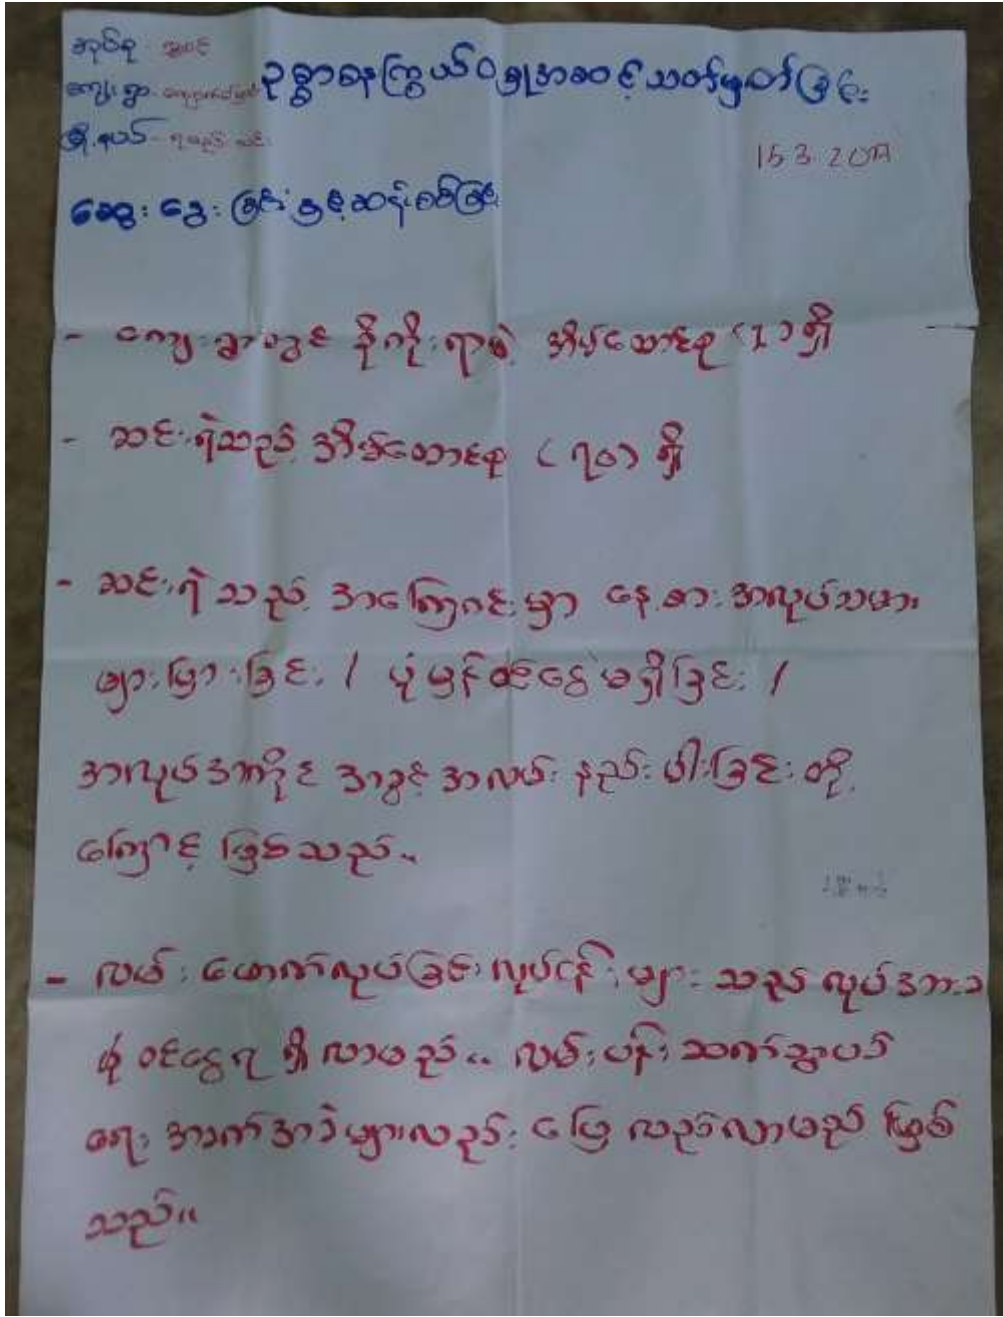 အုပ်စု -
ကျေးရွာ -
ဥစ္စာဓနကြွယ်ဝမှုအဆင့်သတ်မှတ်ခြင်း
မြို့နယ် -
15.3.2017
ဆွေးနွေးခြင်းနှင့်ဆန်းစစ်ခြင်း
- ကျေးရွာတွင် ခိုကိုးရာမဲ့ အိမ်ထောင်စု (၇) ရှိ
- ဆင်းရဲသည့် အိမ်ထောင်စု (၇၀) ရှိ
- ဆင်းရဲသည့် အကြောင်းမှာ နေ့စားအလုပ်သမား
များပြားခြင်း / ပုံမှန်ဝင်ငွေမရှိခြင်း /
အလုပ်အကိုင် အခွင့်အလမ်း နည်းပါးခြင်း တို့
ကြောင့် ဖြစ်သည်။
- လမ်းဖောက်လုပ်ခြင်းလုပ်ငန်းများ သည် လုပ်အားခ
ဖုံ ဝင်ငွေရ ရှိလာမည်။ လမ်းပန်းဆက်သွယ်
ရေး အခက်အခဲများလည်း ပြေလည်လာမည် ဖြစ်
သည်။